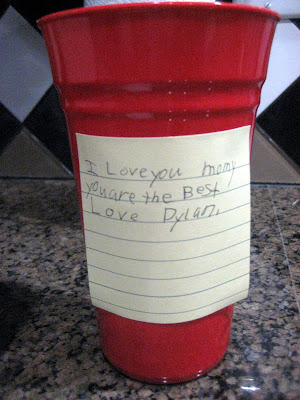 I Love you momy
you are the Best
Love Dylan.